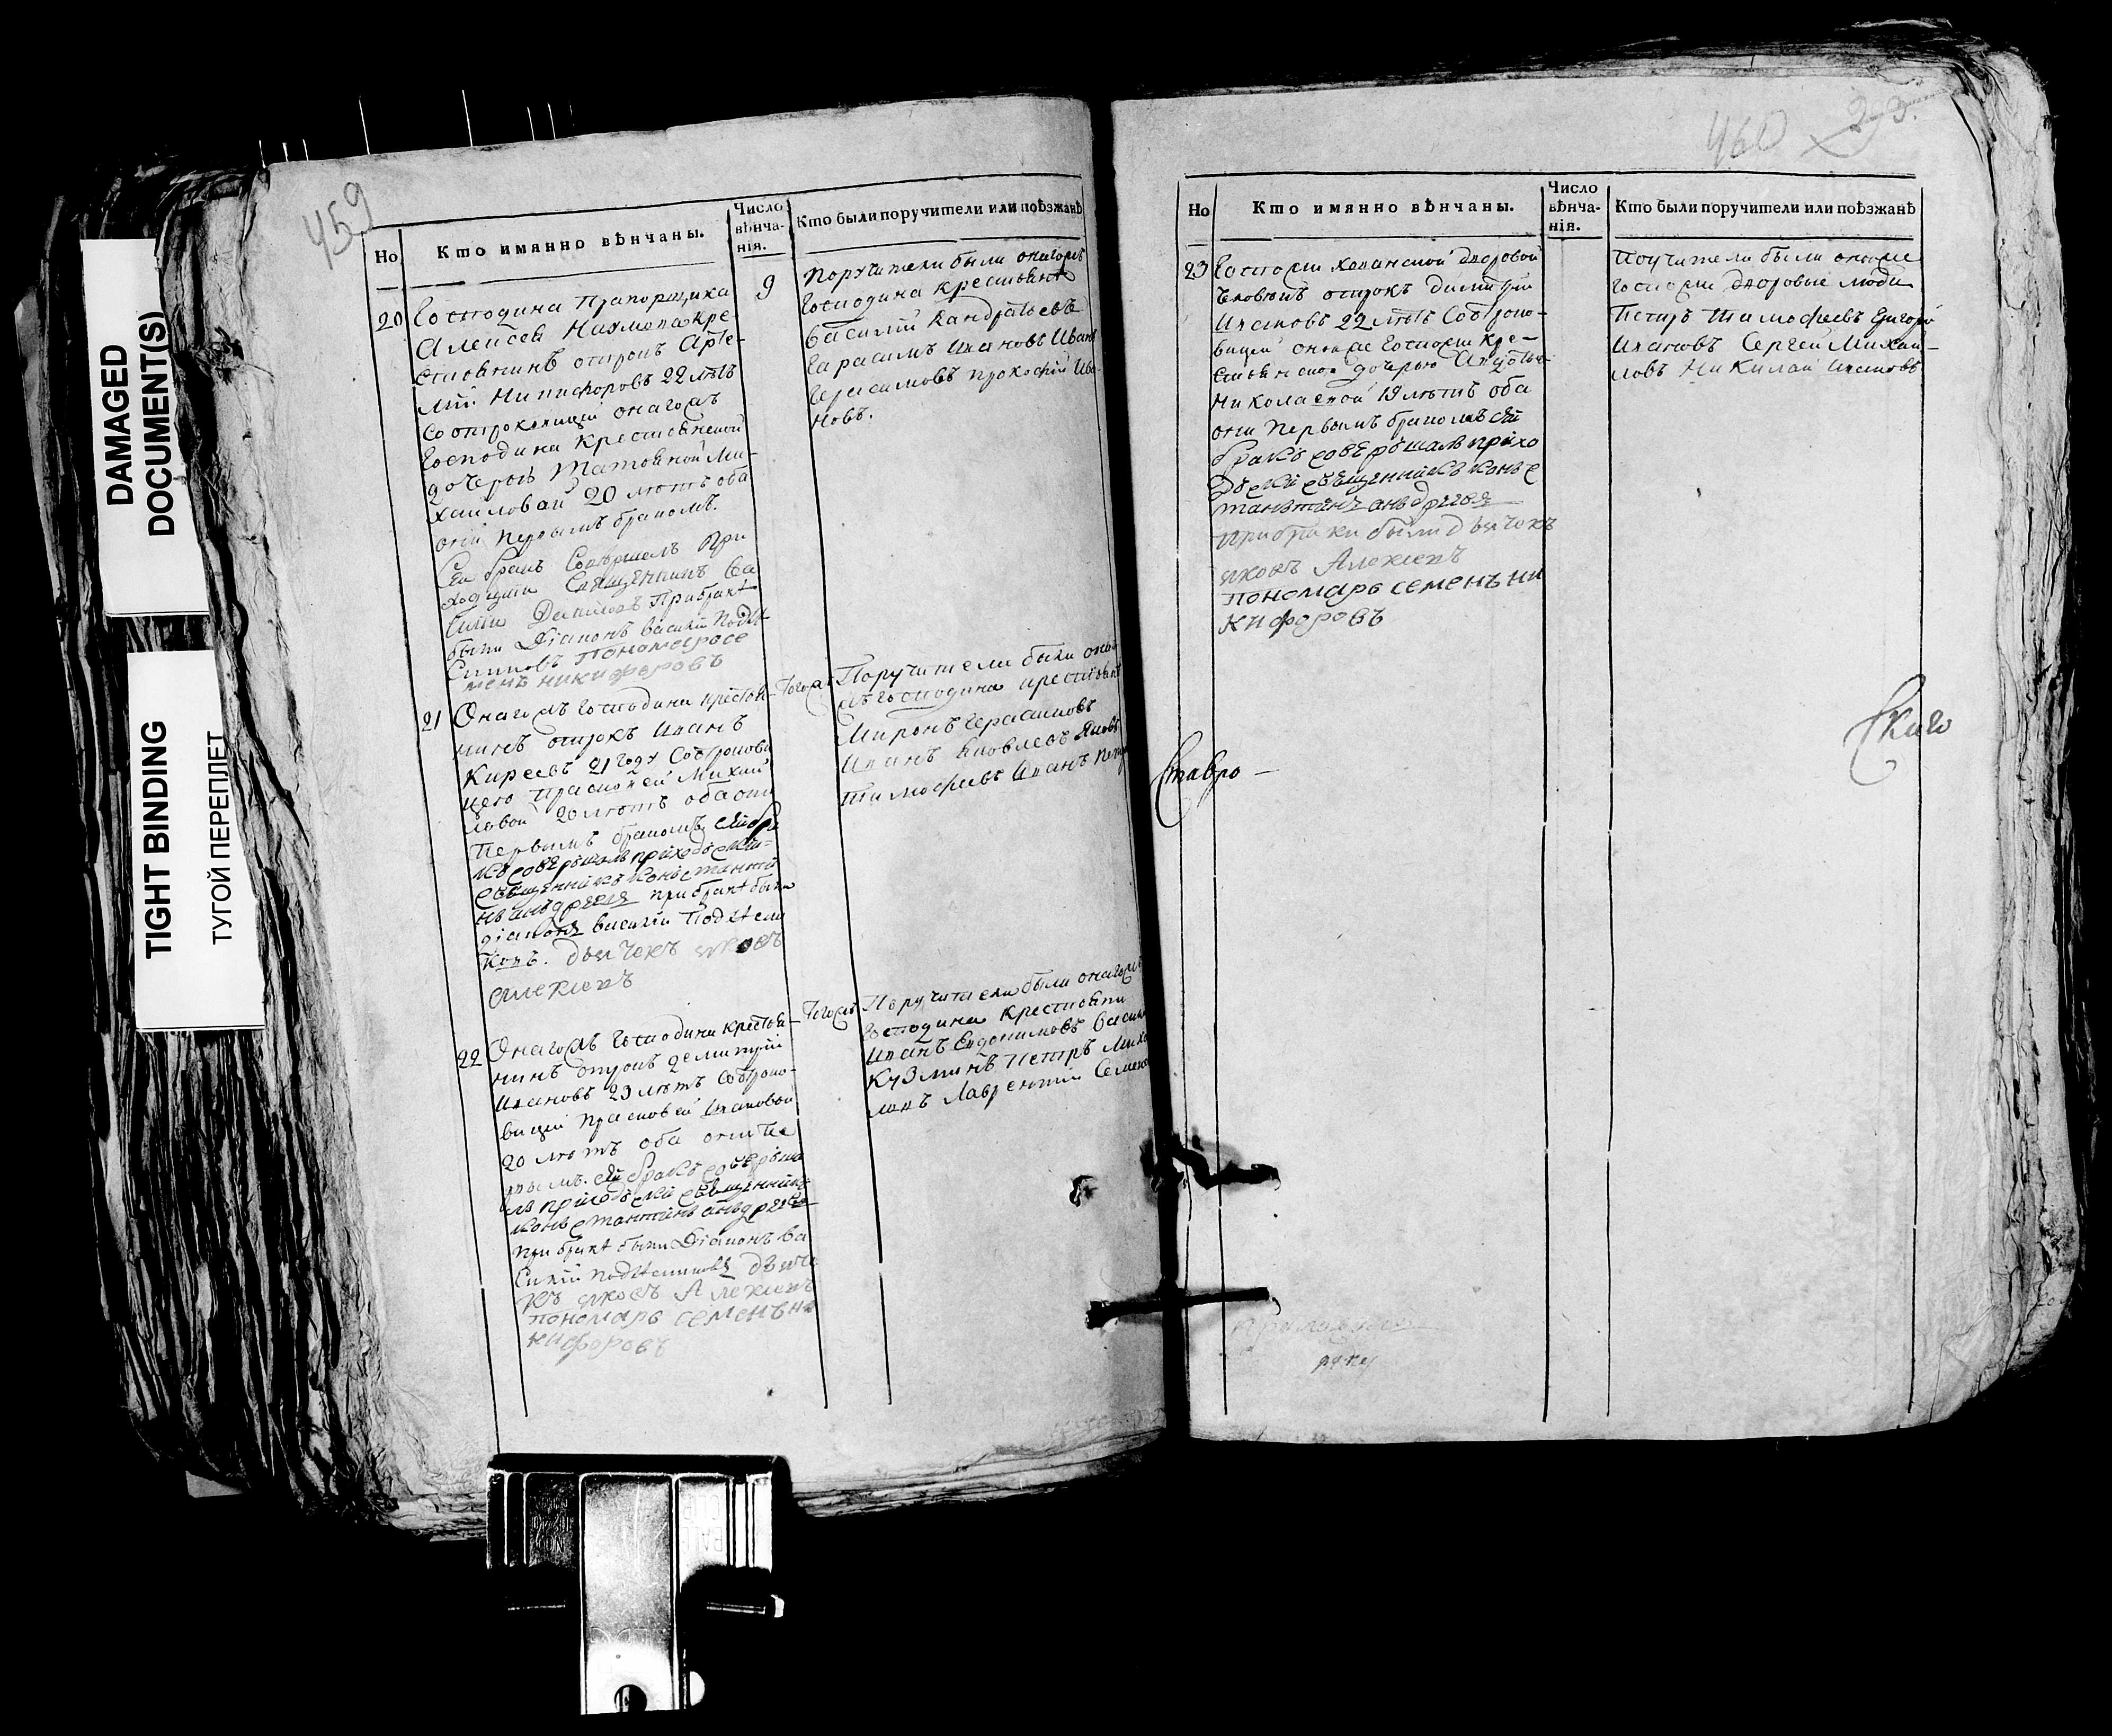 DAMAGED
DOCUMENT(S)
TIGHT BINDING
ТУГОЙ ПЕРЕПЛЕТ
459
Но
Кто имянно вѣнчаны.
Число вѣнча-нія.
Кто были поручители или поѣзжанѣ
20
Господина Прапорщика
Алексея кре-
стьянинъ отрокъ Арте-
мій Никифоровъ 22 лѣтъ
со отроковицей онагожъ
Господина Крестьянской
дочерью Татьяной Ми-
хайловай 20 лѣтъ оба
они первымъ бракомъ.
Сей бракъ Совершалъ При
ходщкій Священникъ Ва
силій При бракѣ
были Діаконъ Василій
Пономарь Се
менъ никифоровъ
9
Поручители были онагожъ
Господина крестьянѣ
Василій Кандратьевъ
Гарасимъ Ивановъ Иванъ
Герасимовъ Прокофій Ива-
новъ.
21
Онагожъ Господина крестья-
нинъ отрокъ Иванъ
Киреевъ 21 году Со отрокови
цею Прасковей Михай
ловой 20 лѣтъ оба они
Первымъ бракомъ сей бра
къ совершалъ приходской
священникъ константи
нъ анъдреевъ при бракѣ были
діаконъ василій
дьячекъ яковъ
алексеевъ
Тогожъ
Поручители были онаго
жъ господина крестьянѣ
Миронъ Герасимовъ
Иванъ Яковлевъ Яковъ
Тимофеевъ Иванъ Петр
22
Онагожъ Господина крестья-
нинъ отрокъ Димитрій
Ивановъ 23 лѣтъ Со отроко-
вицей Прасковей Ивановой
20 лѣтъ оба они Пе
рвымъ. сей бракъ соверша
лъ приходской священникъ
констанътинъ анъдреевъ
при бракѣ были Діаконъ Ва
силій дьяче
къ яковъ Алексеевъ
пономарь семенъ ни
кифоровъ
Тогожъ
Поручители были онагожъ
Господина Крестьяни
Иванъ Евдокимовъ Васил
Кузминъ Петръ Миха
ловъ Лаврентій Семено
460
293.
Но
Кто имянно вѣнчаны.
Число вѣнча-нія.
Кто были поручители или поѣзжанѣ
23
Госпожи дворовой
человекъ отрокъ Димитрій
Ивановъ 22 лѣтъ Со отроко-
вицей оноже Госпожи кре-
стьянской дочерью
Николаевой 19 лѣтъ оба
они первымъ бракомъ сей
бракъ совершалъ прихо
дской священникъ конъс
танътинъ анъдреевъ
при браки были дьячокъ
яковъ Алексеевъ
Пономарь семенъ ни
кифоровъ
Поучители были оноже
госпожи дворовые люди
Петръ Тимофеевъ Григорій
Ивановъ Сергей Михаи-
ловъ Николай Ивановъ
Ставро-
Скаго
руку